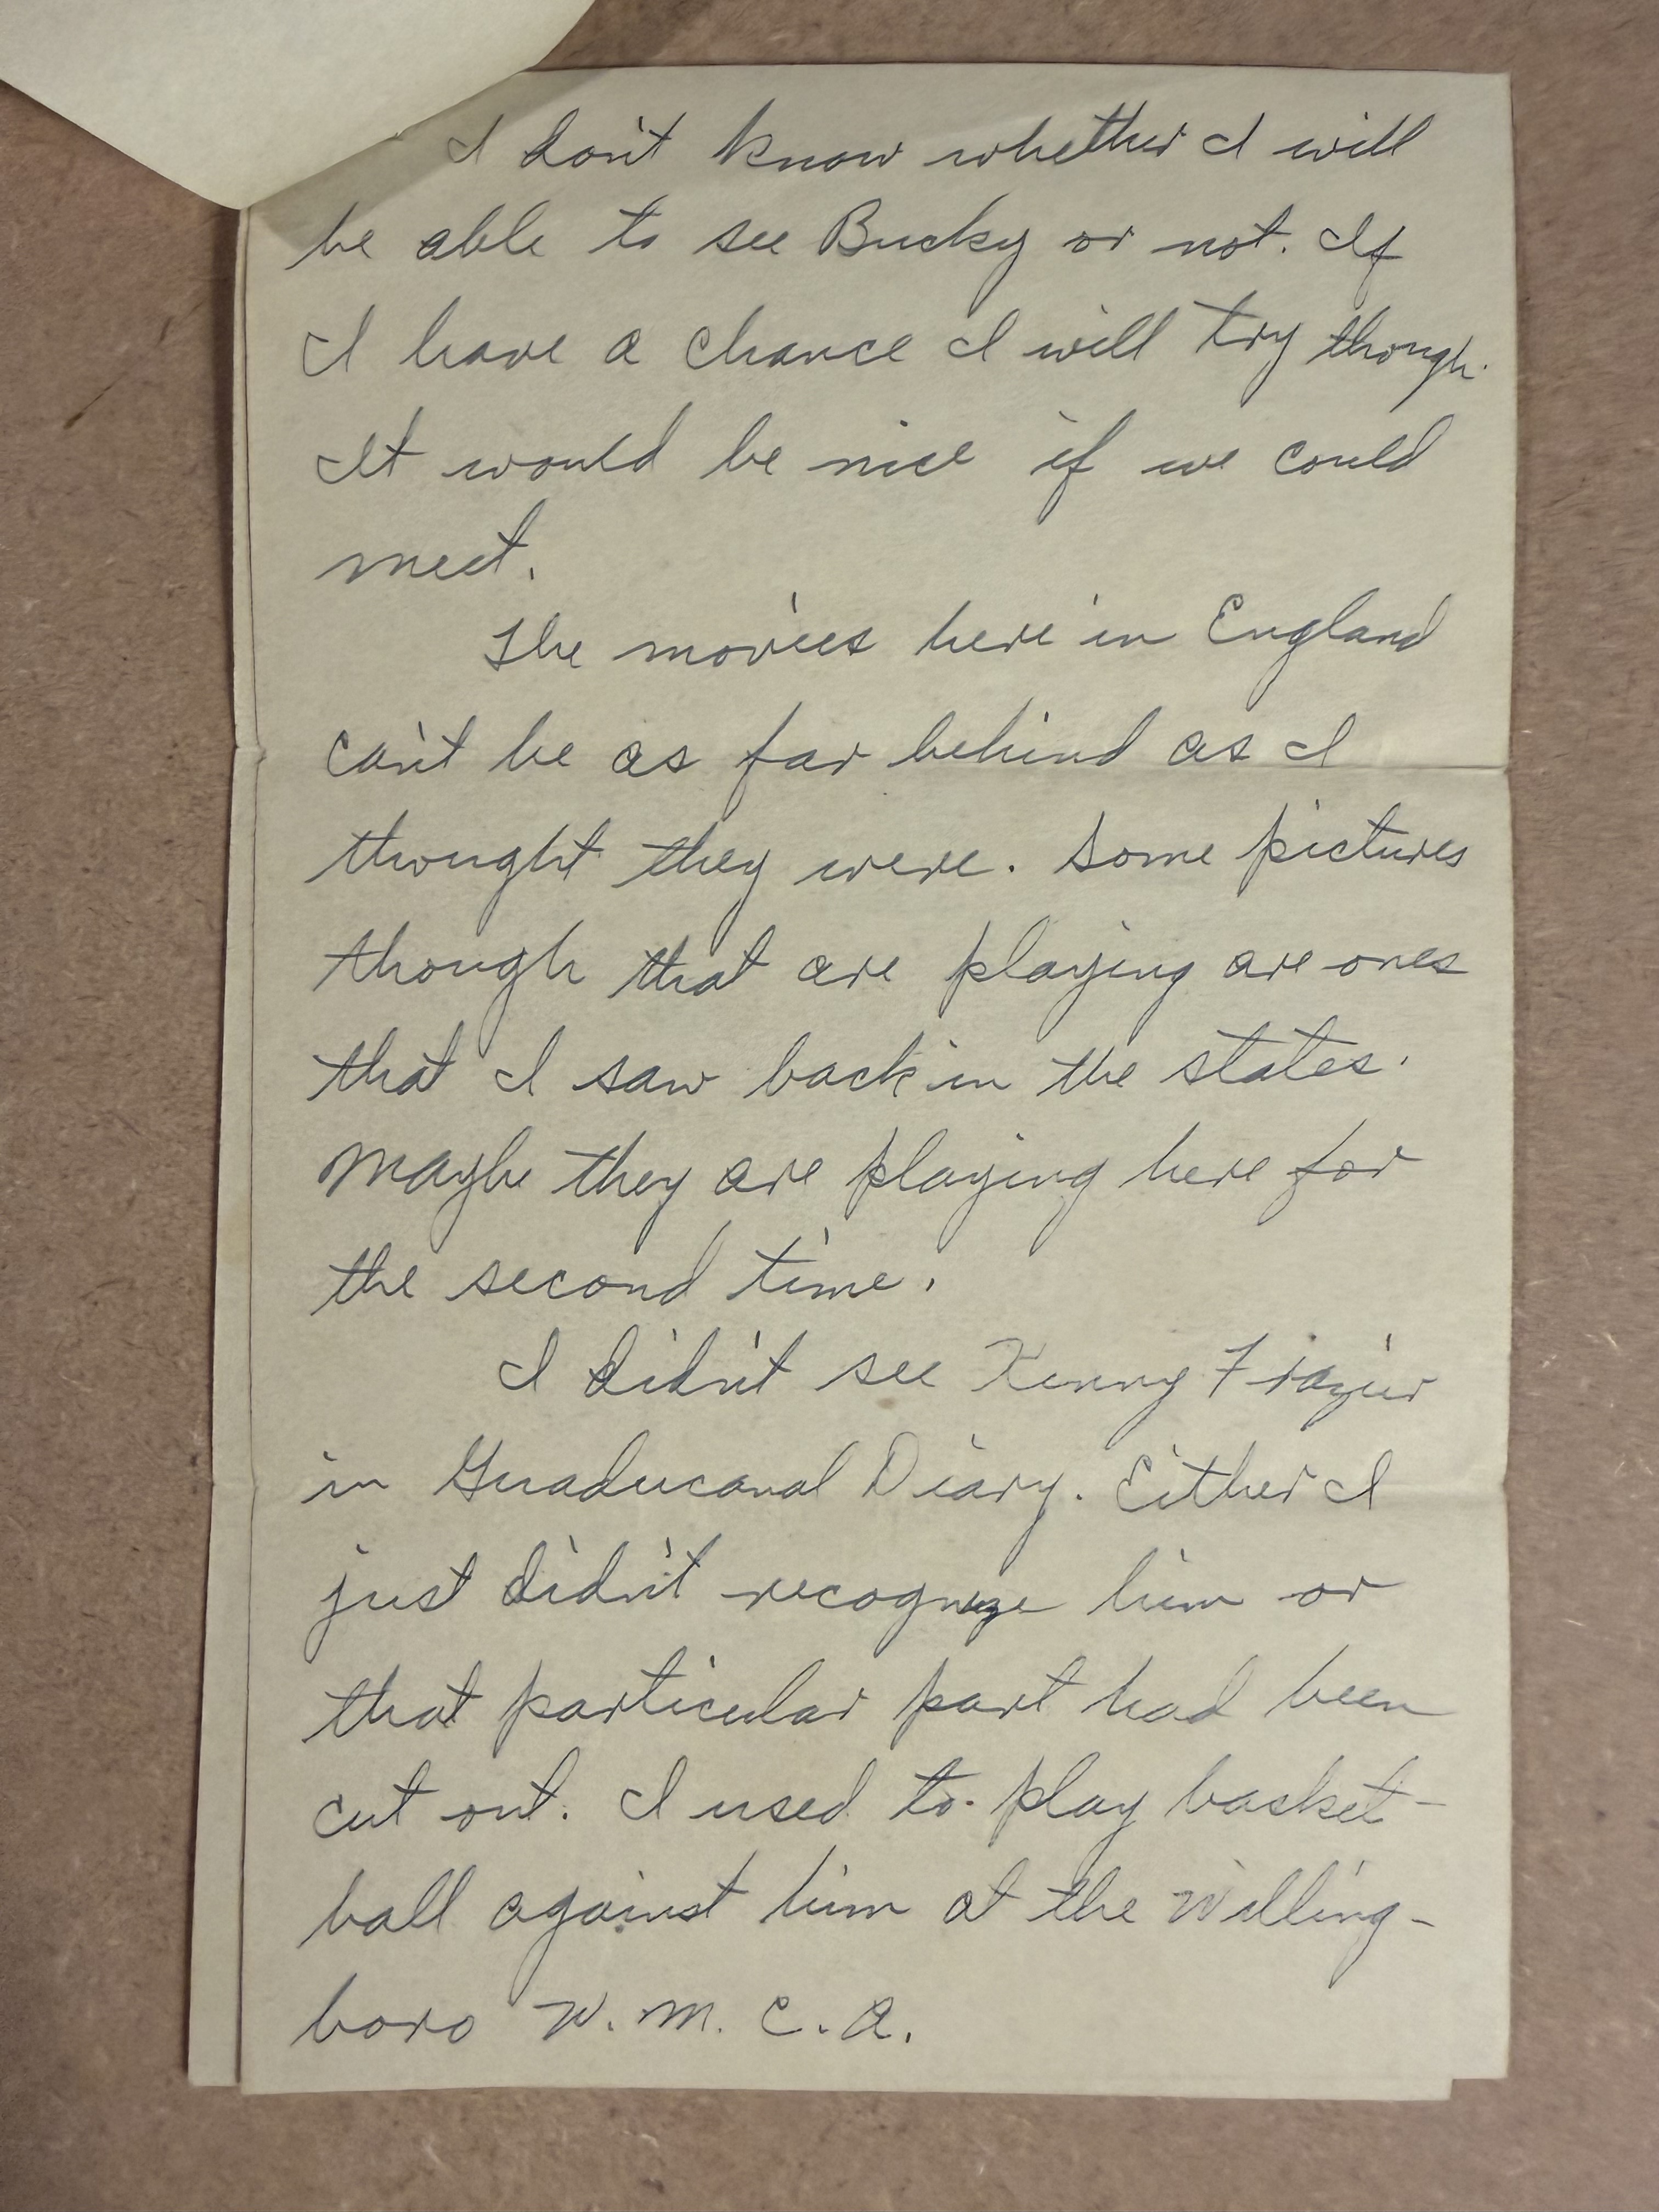 I don't know whether I will
be able to see Bucky or not. If
I have a chance I will try though.
It would be nice if we could
meet.
The movies here in England
can't be as far behind as I
thought they were. Some pictures
though that are playing are ones
that I saw back in the states.
Maybe they are playing here for
the second time.
I didn't see Kenny Frazier
in Guaducanal Diary. Either I
just didn't recognize him or
that particular part had been
cut out. I used to play basket-
ball against him at the Willing-
boro W.M.C.A.